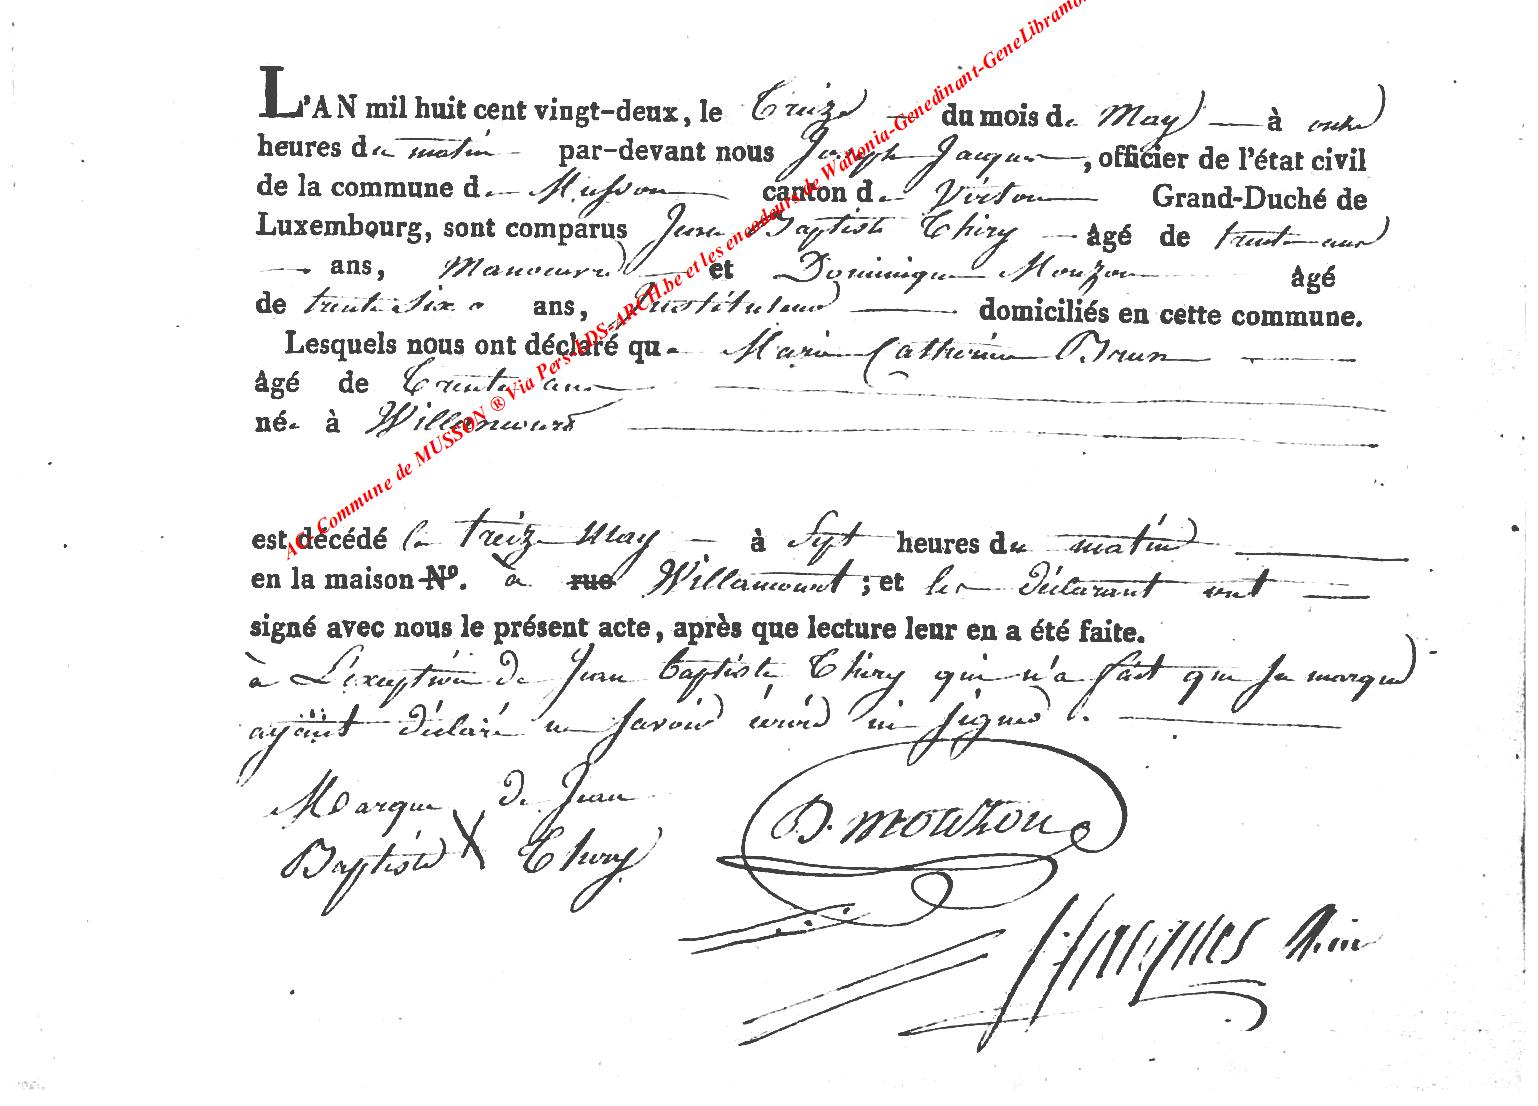 L'AN mil huit cent vingt-deux, le Treize du mois de May à onze
heures du matin par-devant nous Joseph Jacques, officier de l'état civil
de la commune de Musson canton de Virton Grand-Duché de
Luxembourg, sont comparus Jean Baptiste Thiry âgé de trente
ans, Manoeuvre et Dominique Mouzon âgé
de trente six ans, Instituteur domiciliés en cette commune.
Lesquels nous ont déclaré que Marie Catherine Brun
âgé de Trente ans
née à Willancourt
est décédé le treize May à Sept heures du matin
en la maison N°. à rue Willancourt ; et les déclarant ont
signé avec nous le présent acte, après que lecture leur en a été faite.
à L'exception de Jean Baptiste Thiry qui n'a fait que sa marque
ayant déclaré ne savoir écrire ni signer.
Marque de Jean
Baptiste X Thiry
D. mouzon
J Jacques
AC- Commune de MUSSON ® Via Pers-LDS-ARCH.be et les encodeurs de Wallonia-Genedinant-GeneLibramo